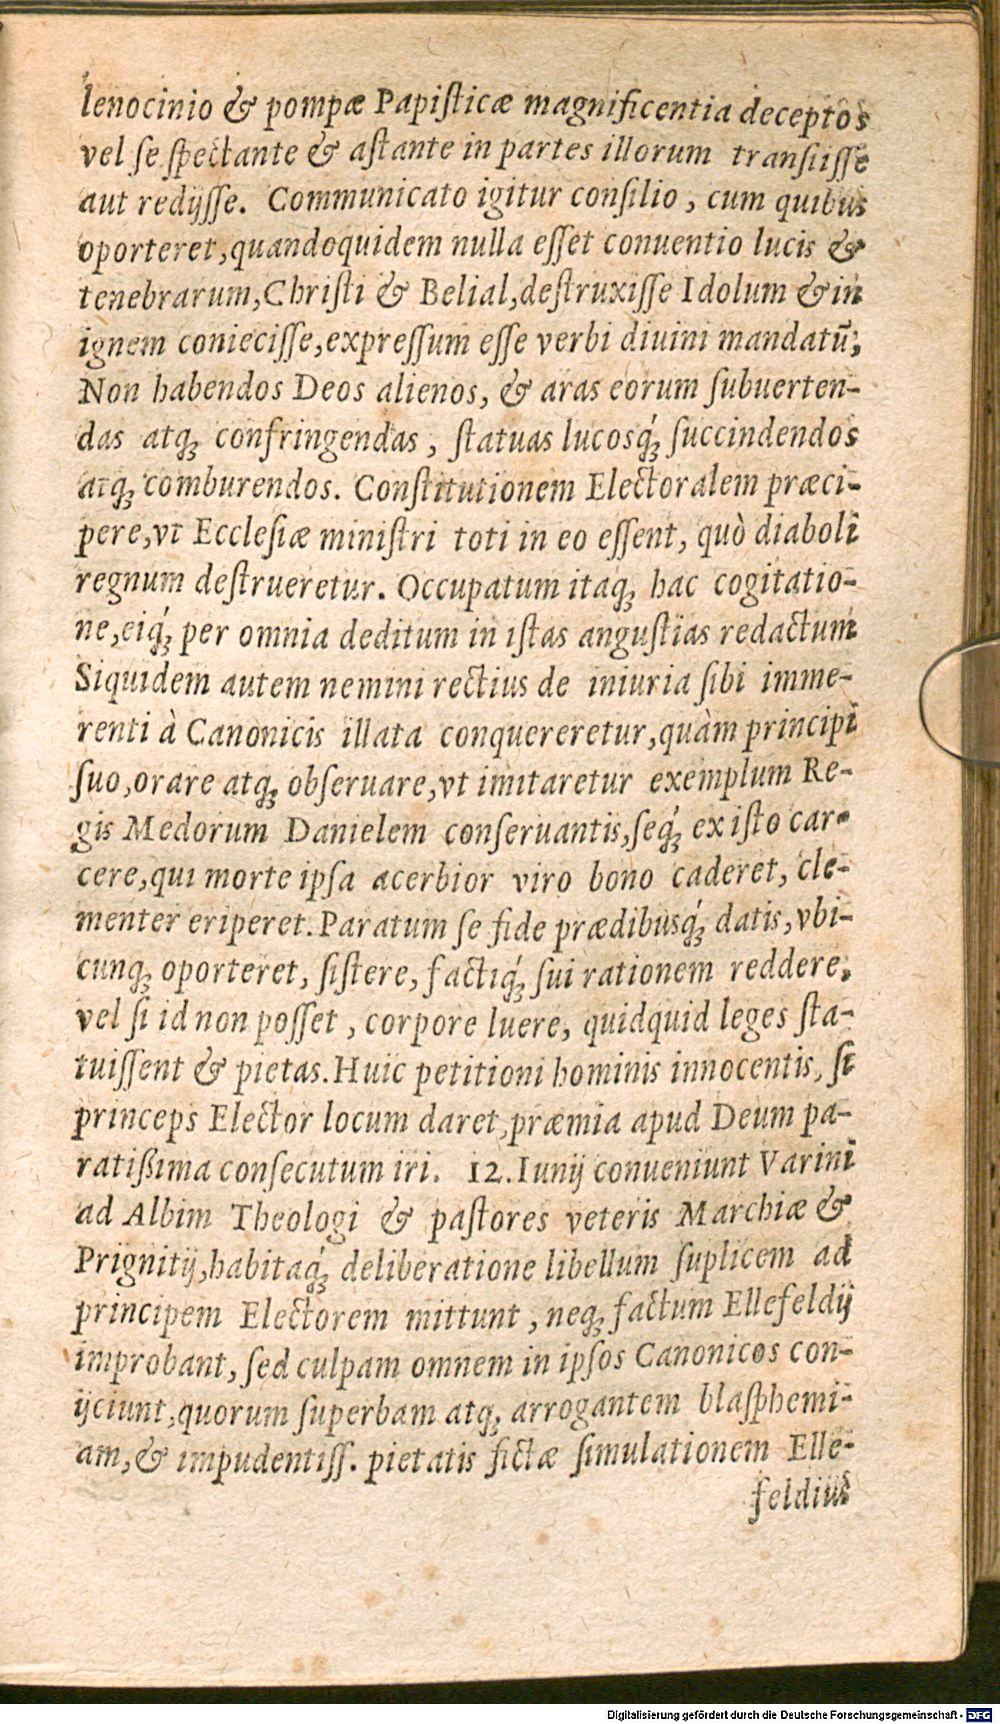 lenocinio & pompæ Papiſticæ magnificentia deceptos
vel ſe ſpectante & aſtante in partes illorum tranſiiſſe
aut redijſſe. Communicato igitur conſilio, cum quibus
oporteret, quandoquidem nulla eſſet conuentio lucis &
tenebrarum, Chriſti & Belial, deſtruxiſſe Idolum & in
ignem conieciſſe, expreſſum eſſe verbi diuini mandatū,
Non habendos Deos alienos, & aras eorum ſubuerten-
das atq; confringendas, ſtatuas lucosq́; ſuccindendos
atq; comburendos. Conſtitutionem Electoralem præci-
pere, vt Eccleſiæ miniſtri toti in eo eſſent, quò diaboli
regnum deſtrueretur. Occupatum itaq; hac cogitatio-
ne, eiq́; per omnia deditum in iſtas anguſtias redactum
Siquidem autem nemini rectius de iniuria ſibi imme-
renti à Canonicis illata conquereretur, quàm principi
ſuo, orare atq; obſeruare, vt imitaretur exemplum Re-
gis Medorum Danielem conſeruantis, ſeq́; ex iſto car-
cere, qui morte ipſa acerbior viro bono caderet, cle-
menter eriperet. Paratum ſe fide prædibusq́; datis, vbi-
cunq; oporteret, ſiſtere, factiq́; ſui rationem reddere,
vel ſi id non poſſet, corpore luere, quidquid leges ſta-
tuiſſent & pietas. Huic petitioni hominis innocentis, ſi
princeps Elector locum daret, præmia apud Deum pa-
ratißima conſecutum iri. 12. Iunij conueniunt Varini
ad Albim Theologi & paſtores veteris Marchiæ &
Prignitij, habitaq́; deliberatione libellum ſuplicem ad
principem Electorem mittunt, neq; factum Ellefeldij
improbant, ſed culpam omnem in ipſos Canonicos con-
ijciunt, quorum ſuperbam atq; arrogantem blaſphemi-
am, & impudentiſſ. pietatis fictæ ſimulationem Elle-
feldius
Digitalisierung gefördert durch die Deutsche Forschungsgemeinschaft - DFG